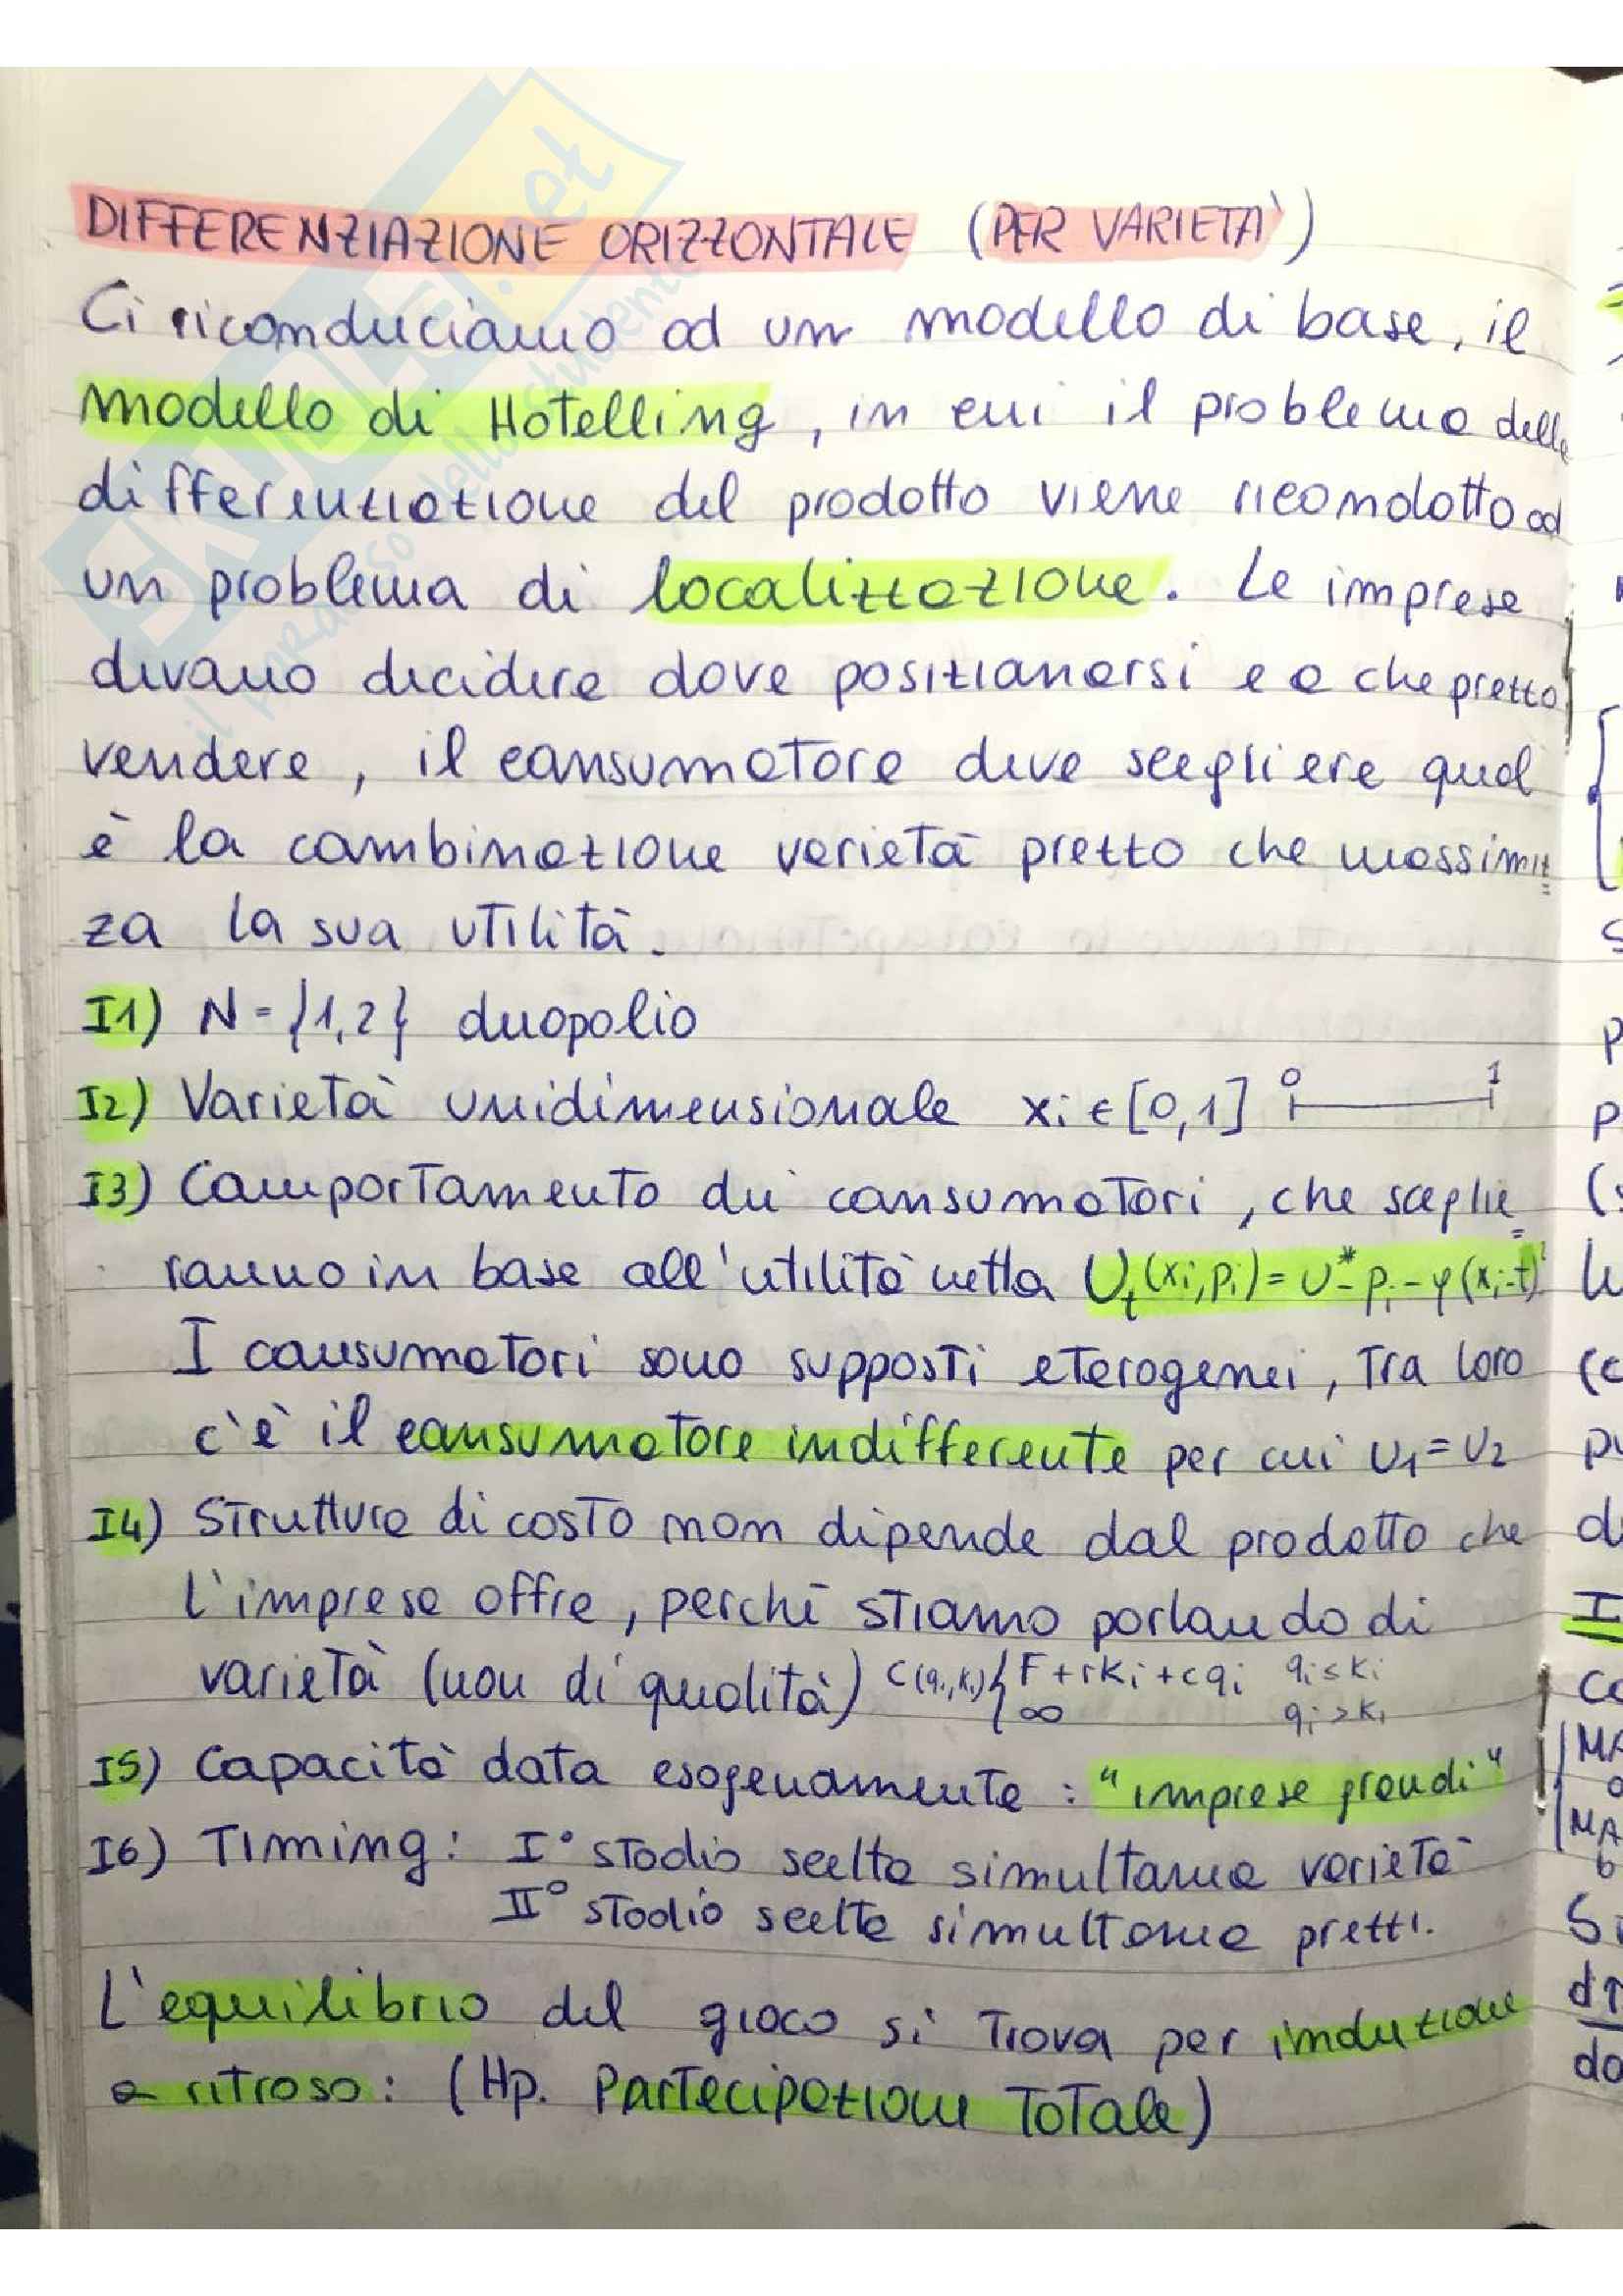 DIFFERENZIAZIONE ORIZZONTALE (PER VARIETA')
Ci riconduciamo ad un modello di base, il
modello di Hotelling, in cui il problema della
differenziazione del prodotto viene ricondotto ad
un problema di localizzazione. Le imprese
devono decidere dove posizionarsi e a che prezzo
vendere, il consumatore deve scegliere qual
è la combinazione varietà prezzo che massimiz=
za la sua utilità.
I1) N={1,2} duopolio
I2) Varietà unidimensionale xi ∈ [0,1] 0 1
I3) Comportamento dei consumatori, che sceglie=
ranno in base all'utilità netta Ut(xi,pi)=U*-pi-φ(xi-t)²
I consumatori sono supposti eterogenei, tra loro
c'è il consumatore indifferente per cui U1=U2
I4) Struttura di costo non dipende dal prodotto che
l'impresa offre, perché stiamo parlando di
varietà (non di qualità) C(qi,ki) { F+rki+cqi qi≤ki
∞ qi>ki
I5) Capacità data esogenamente: "imprese grandi"
I6) Timing: I° stadio scelta simultanea varietà
II° stadio scelta simultanea prezzi.
L'equilibrio del gioco si trova per induzione
a ritroso: (Hp. Partecipazione Totale)
SKUOLA.net
il paradiso dello studente